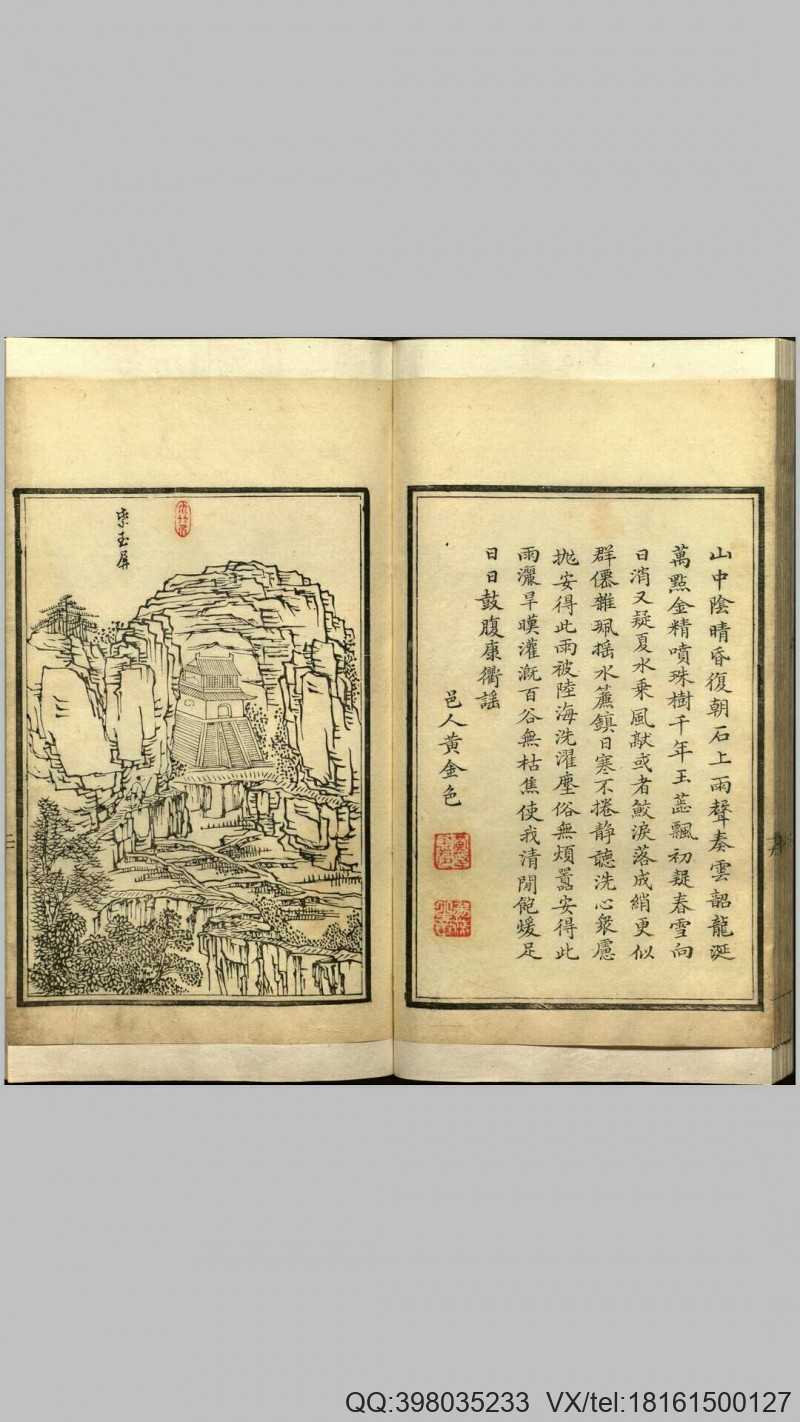 山中陰晴昏復朝石上雨聲奏雲韶龍涎
萬點金精噴珠樹千年玉蕋飄初疑春雪向
日消又疑夏水乗風㪣或者鮫淚落成綃更似
群僊雜珮揺水簾鎮日寒不捲静聽洗心衆慮
拋安得此雨被陸海洗濯塵俗無煩囂安得此
雨灑旱暵灌溉百谷無枯焦使我清閒飽煖足
日日鼓腹康衢謡
邑人黄金色
紫玉屏
QQ:398035233 VX/tel:18161500127